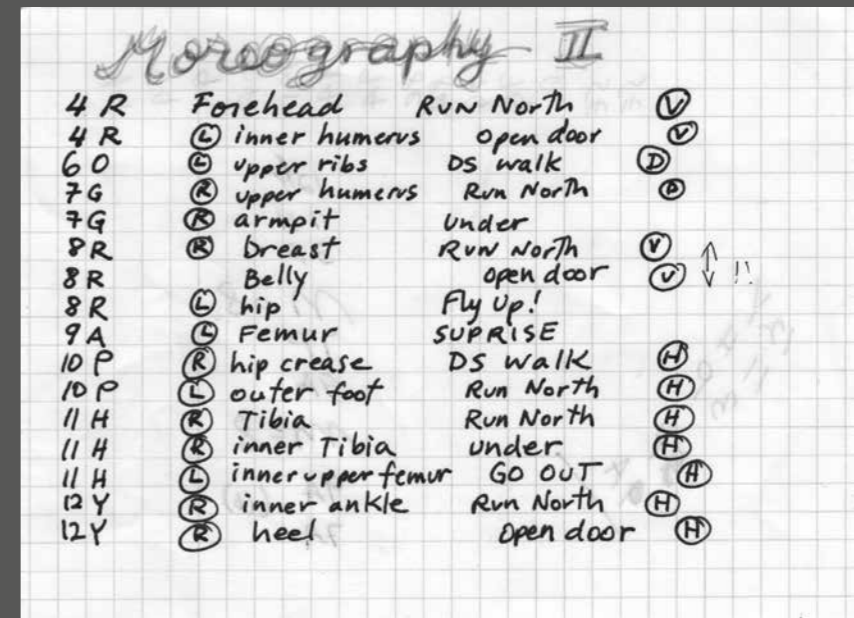 Moreography II
4 R Forehead Run North Ⓥ
4 R Ⓛ inner humerus open door Ⓥ
6 O Ⓛ upper ribs DS walk Ⓓ
7 G Ⓡ upper humerus Run North Ⓓ
7 G Ⓡ armpit under
8 R Ⓡ breast Run North Ⓥ
8 R Belly open door Ⓥ ↕ !!
8 R Ⓛ hip Fly Up!
9 A Ⓛ Femur SUPRISE
10 P Ⓡ hip crease DS walk Ⓗ
10 P Ⓛ outer foot Run North Ⓗ
11 H Ⓡ Tibia Run North Ⓗ
11 H Ⓡ inner Tibia under Ⓗ
11 H Ⓛ inner upper femur GO OUT Ⓗ
12 Y Ⓡ inner ankle Run North Ⓗ
12 Y Ⓡ heel open door Ⓗ